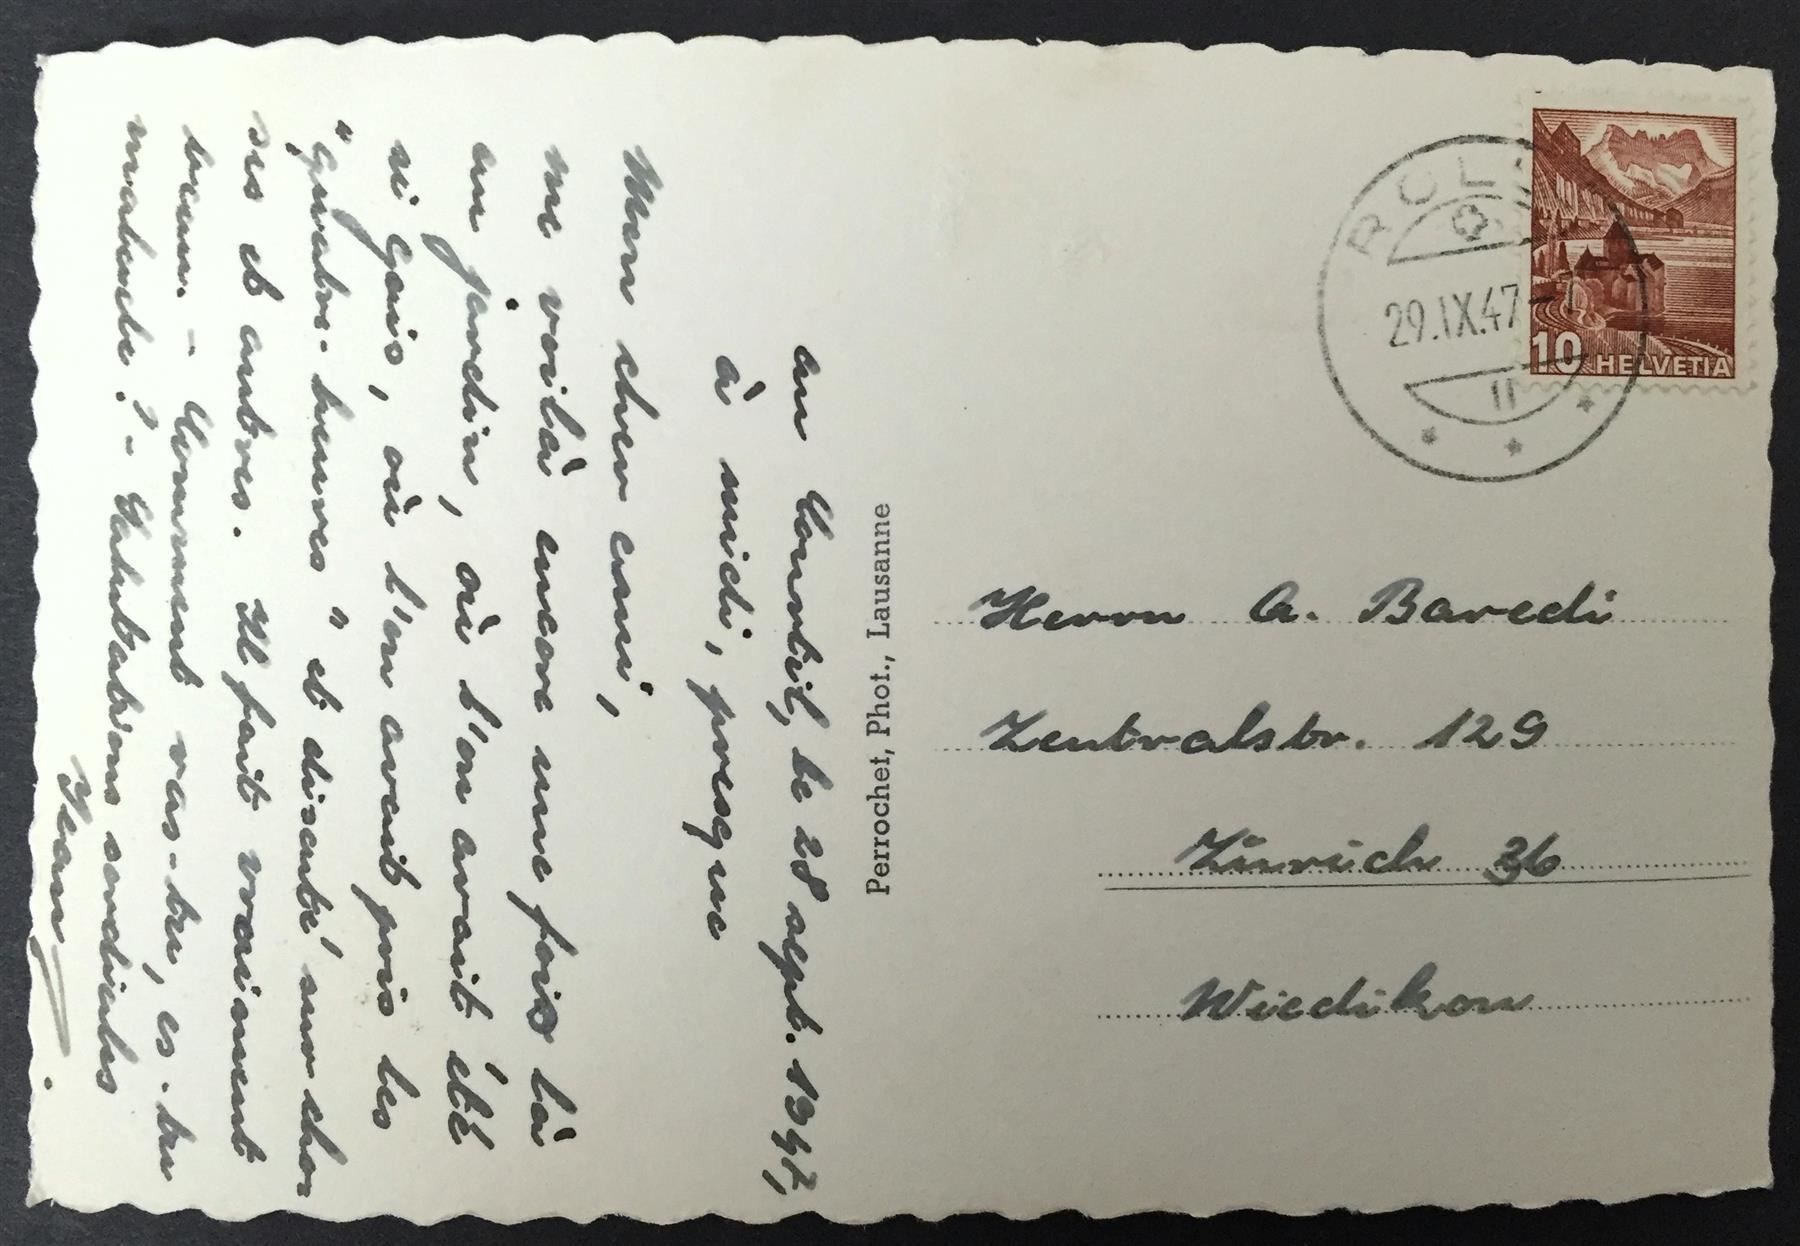 au Courtil, le 28 sept. 1947,
à midi, presque
Mon cher ami,
me voilà encore une fois là
au jardin, où l'on avait été
si gais, où l'on avait pris les
"quatre-heures" et discuté sur cho
ses et autres. Il fait vraiment
beau. - Comment vas-tu, es-tu
malade? - Salutations cordiales
Jean.
Perrochet, Phot., Lausanne
ROLLE
29.IX.47-
11
10 HELVETIA
Herrn A. Baredi
Zentralstr. 129
Zürich 36
Wiedikon